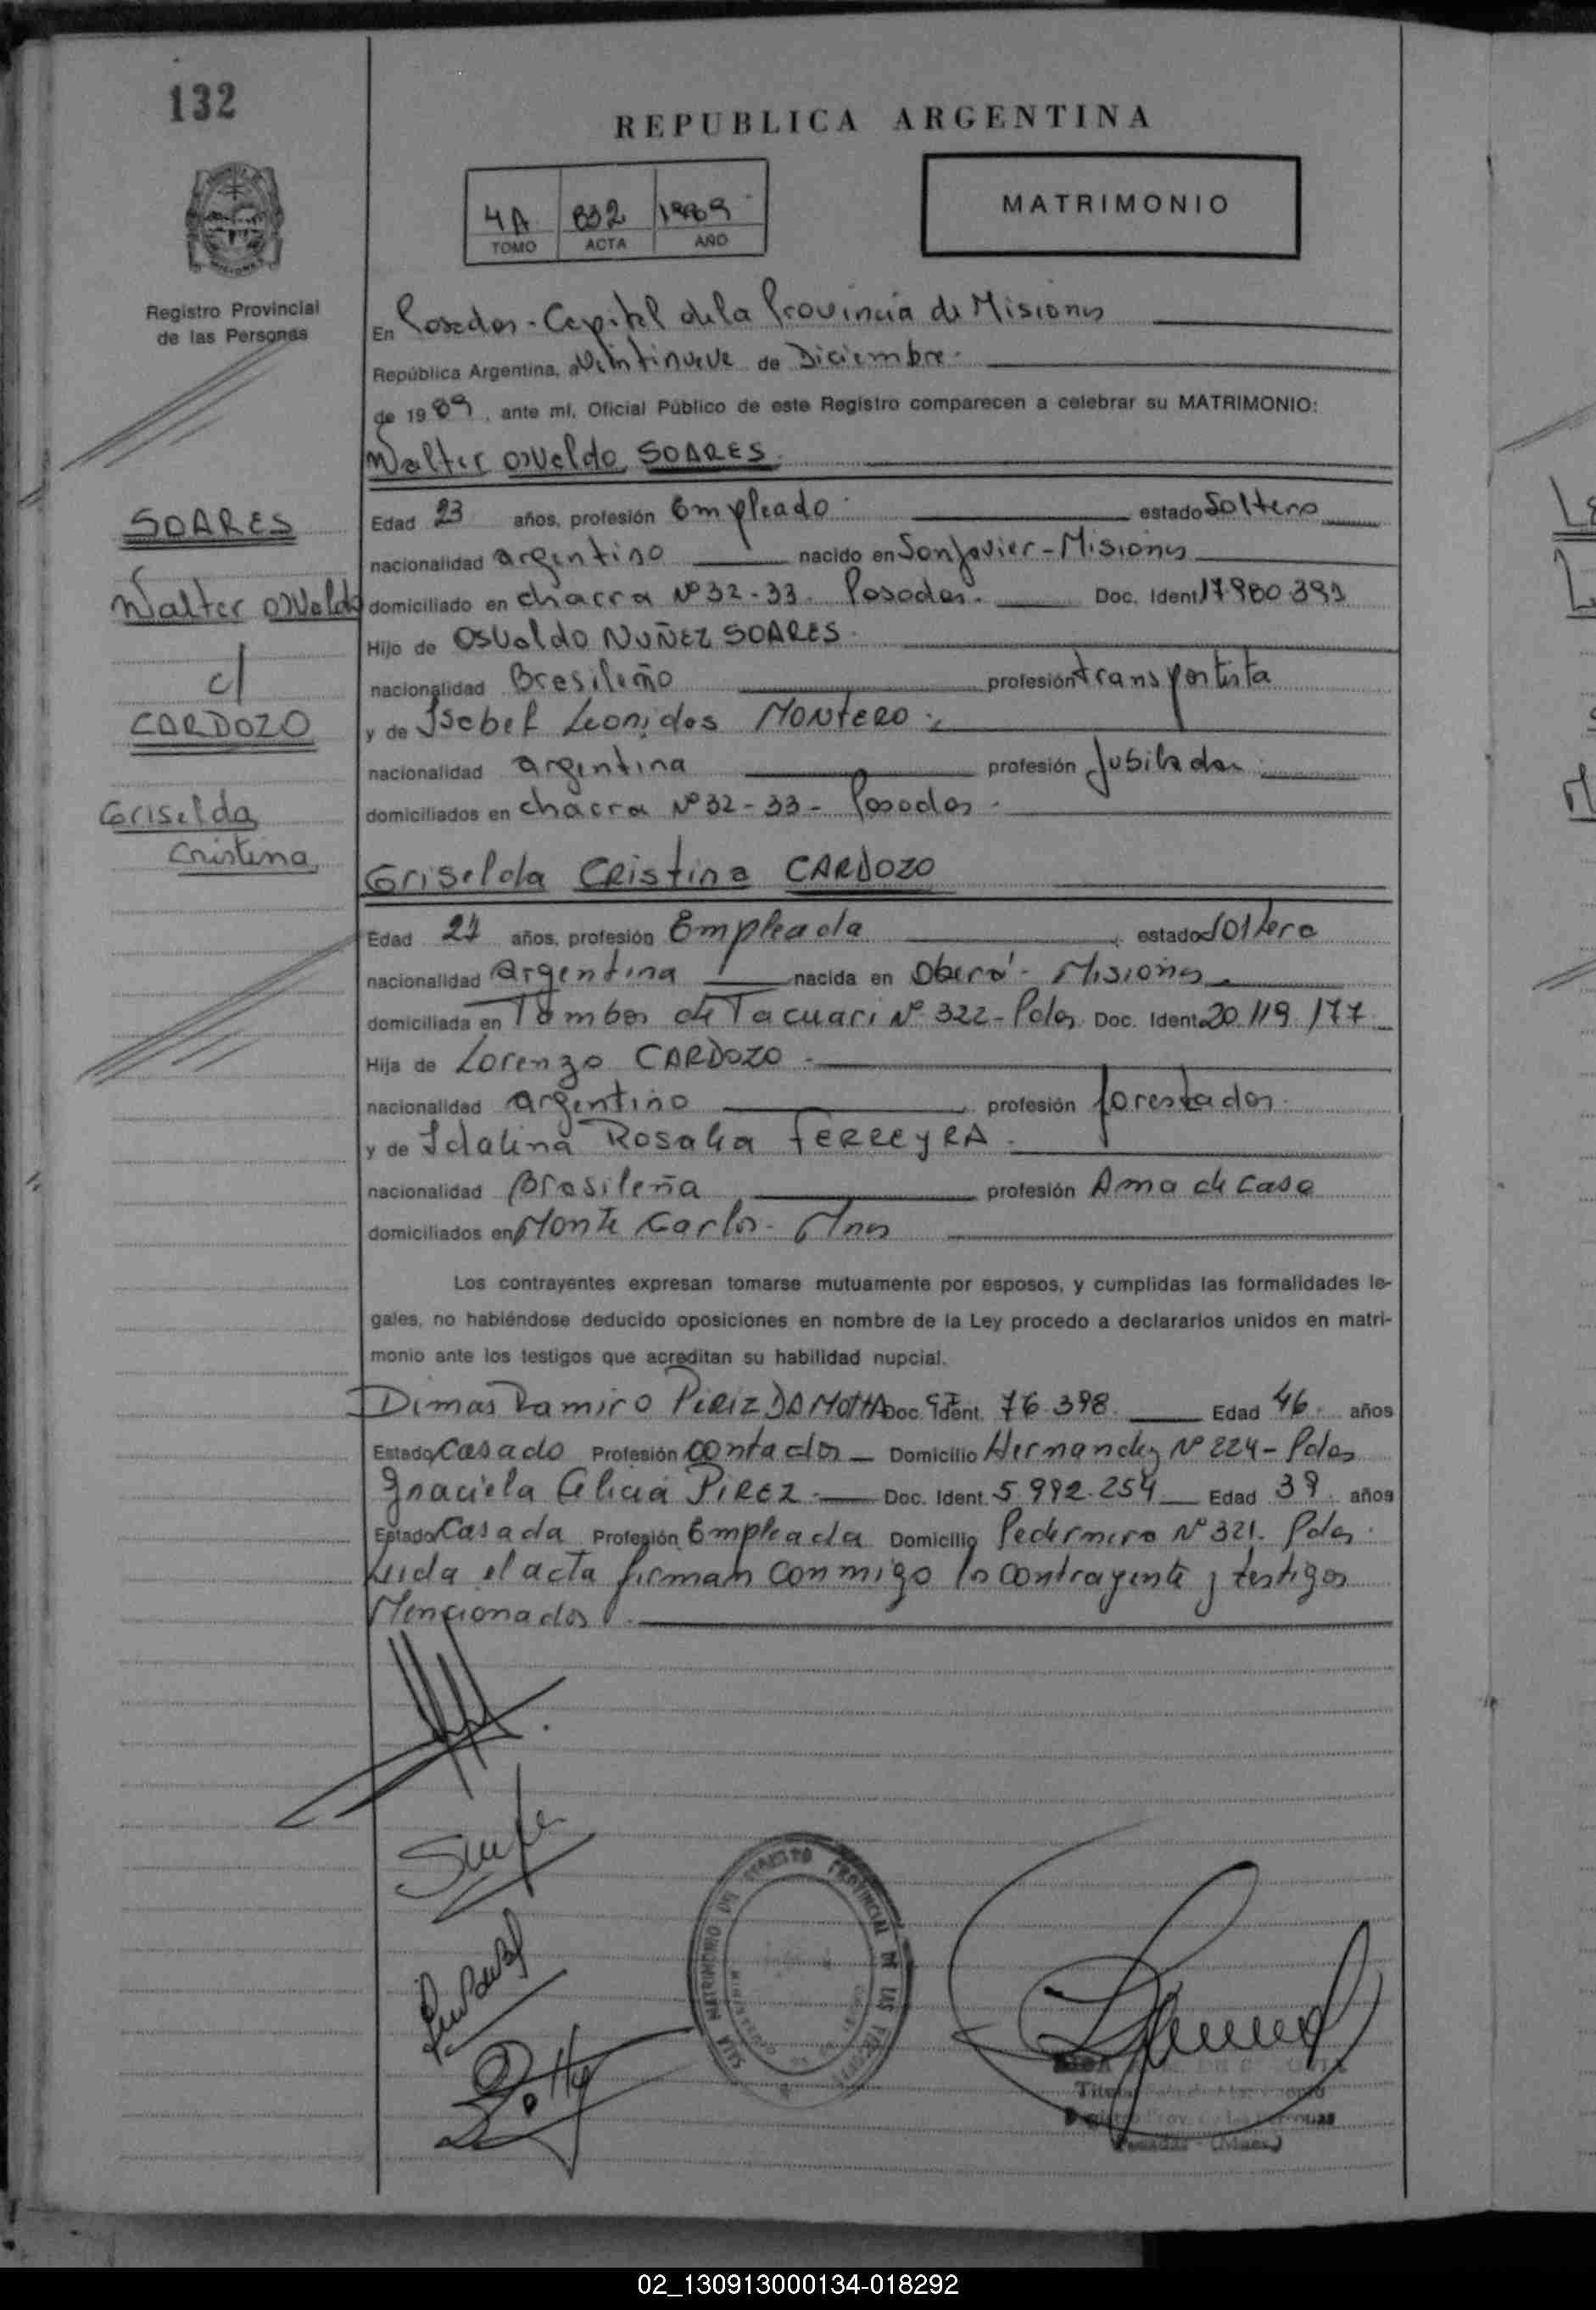 132
REPUBLICA ARGENTINA
4A 832 1989
TOMO ACTA AÑO
MATRIMONIO
Registro Provincial
de las Personas
En Posadas - Capital de la Provincia de Misiones
República Argentina, a Veintinueve de Diciembre.
de 1989, ante mí, Oficial Público de este Registro comparecen a celebrar su MATRIMONIO:
Walter Osvaldo SOARES.
SOARES
Walter Osvaldo
c/
CARDOZO
Griselda
Cristina
Edad 23 años, profesión Empleado estado Soltero
nacionalidad argentino nacido en San Javier - Misiones
domiciliado en chacra Nº 32-33. Posadas. Doc. Ident. 17.980.391
Hijo de Osvaldo NUÑEZ SOARES.
nacionalidad Brasileño profesión transportista
y de Isabel Leonidas MONTERO.
nacionalidad argentina profesión Jubilada
domiciliados en chacra Nº 32-33 - Posadas.
Griselda Cristina CARDOZO
Edad 21 años, profesión Empleada estado soltera
nacionalidad argentina nacida en Oberá - Misiones
domiciliada en Tambor de Tacuari Nº 322 - Pdas Doc. Ident. 20.119.177
Hija de Lorenzo CARDOZO.
nacionalidad argentino profesión forestador.
y de Idalina Rosalia FERREYRA.
nacionalidad Brasileña profesión Ama de casa
domiciliados en Monte Carlo - Mnes
Los contrayentes expresan tomarse mutuamente por esposos, y cumplidas las formalidades le-
gales, no habiéndose deducido oposiciones en nombre de la Ley procedo a declararlos unidos en matri-
monio ante los testigos que acreditan su habilidad nupcial.
Dimas Ramiro PIRIZ DA MOTTA Doc. Ident. CI 76.398. Edad 46. años
Estado Casado Profesión contador Domicilio Hernandez Nº 224 - Pdas
Graciela Alicia PIREZ Doc. Ident. 5.992.254 Edad 39 años
Estado Casada Profesión Empleada Domicilio Pedernera Nº 321. Pdas.
Leida el acta firman conmigo los contrayente y testigos
Mencionados.
SALA MATRIMONIO REGISTRO PROVINCIAL DE LAS PERSONAS
Posadas - (Mnes.)
02_130913000134-018292